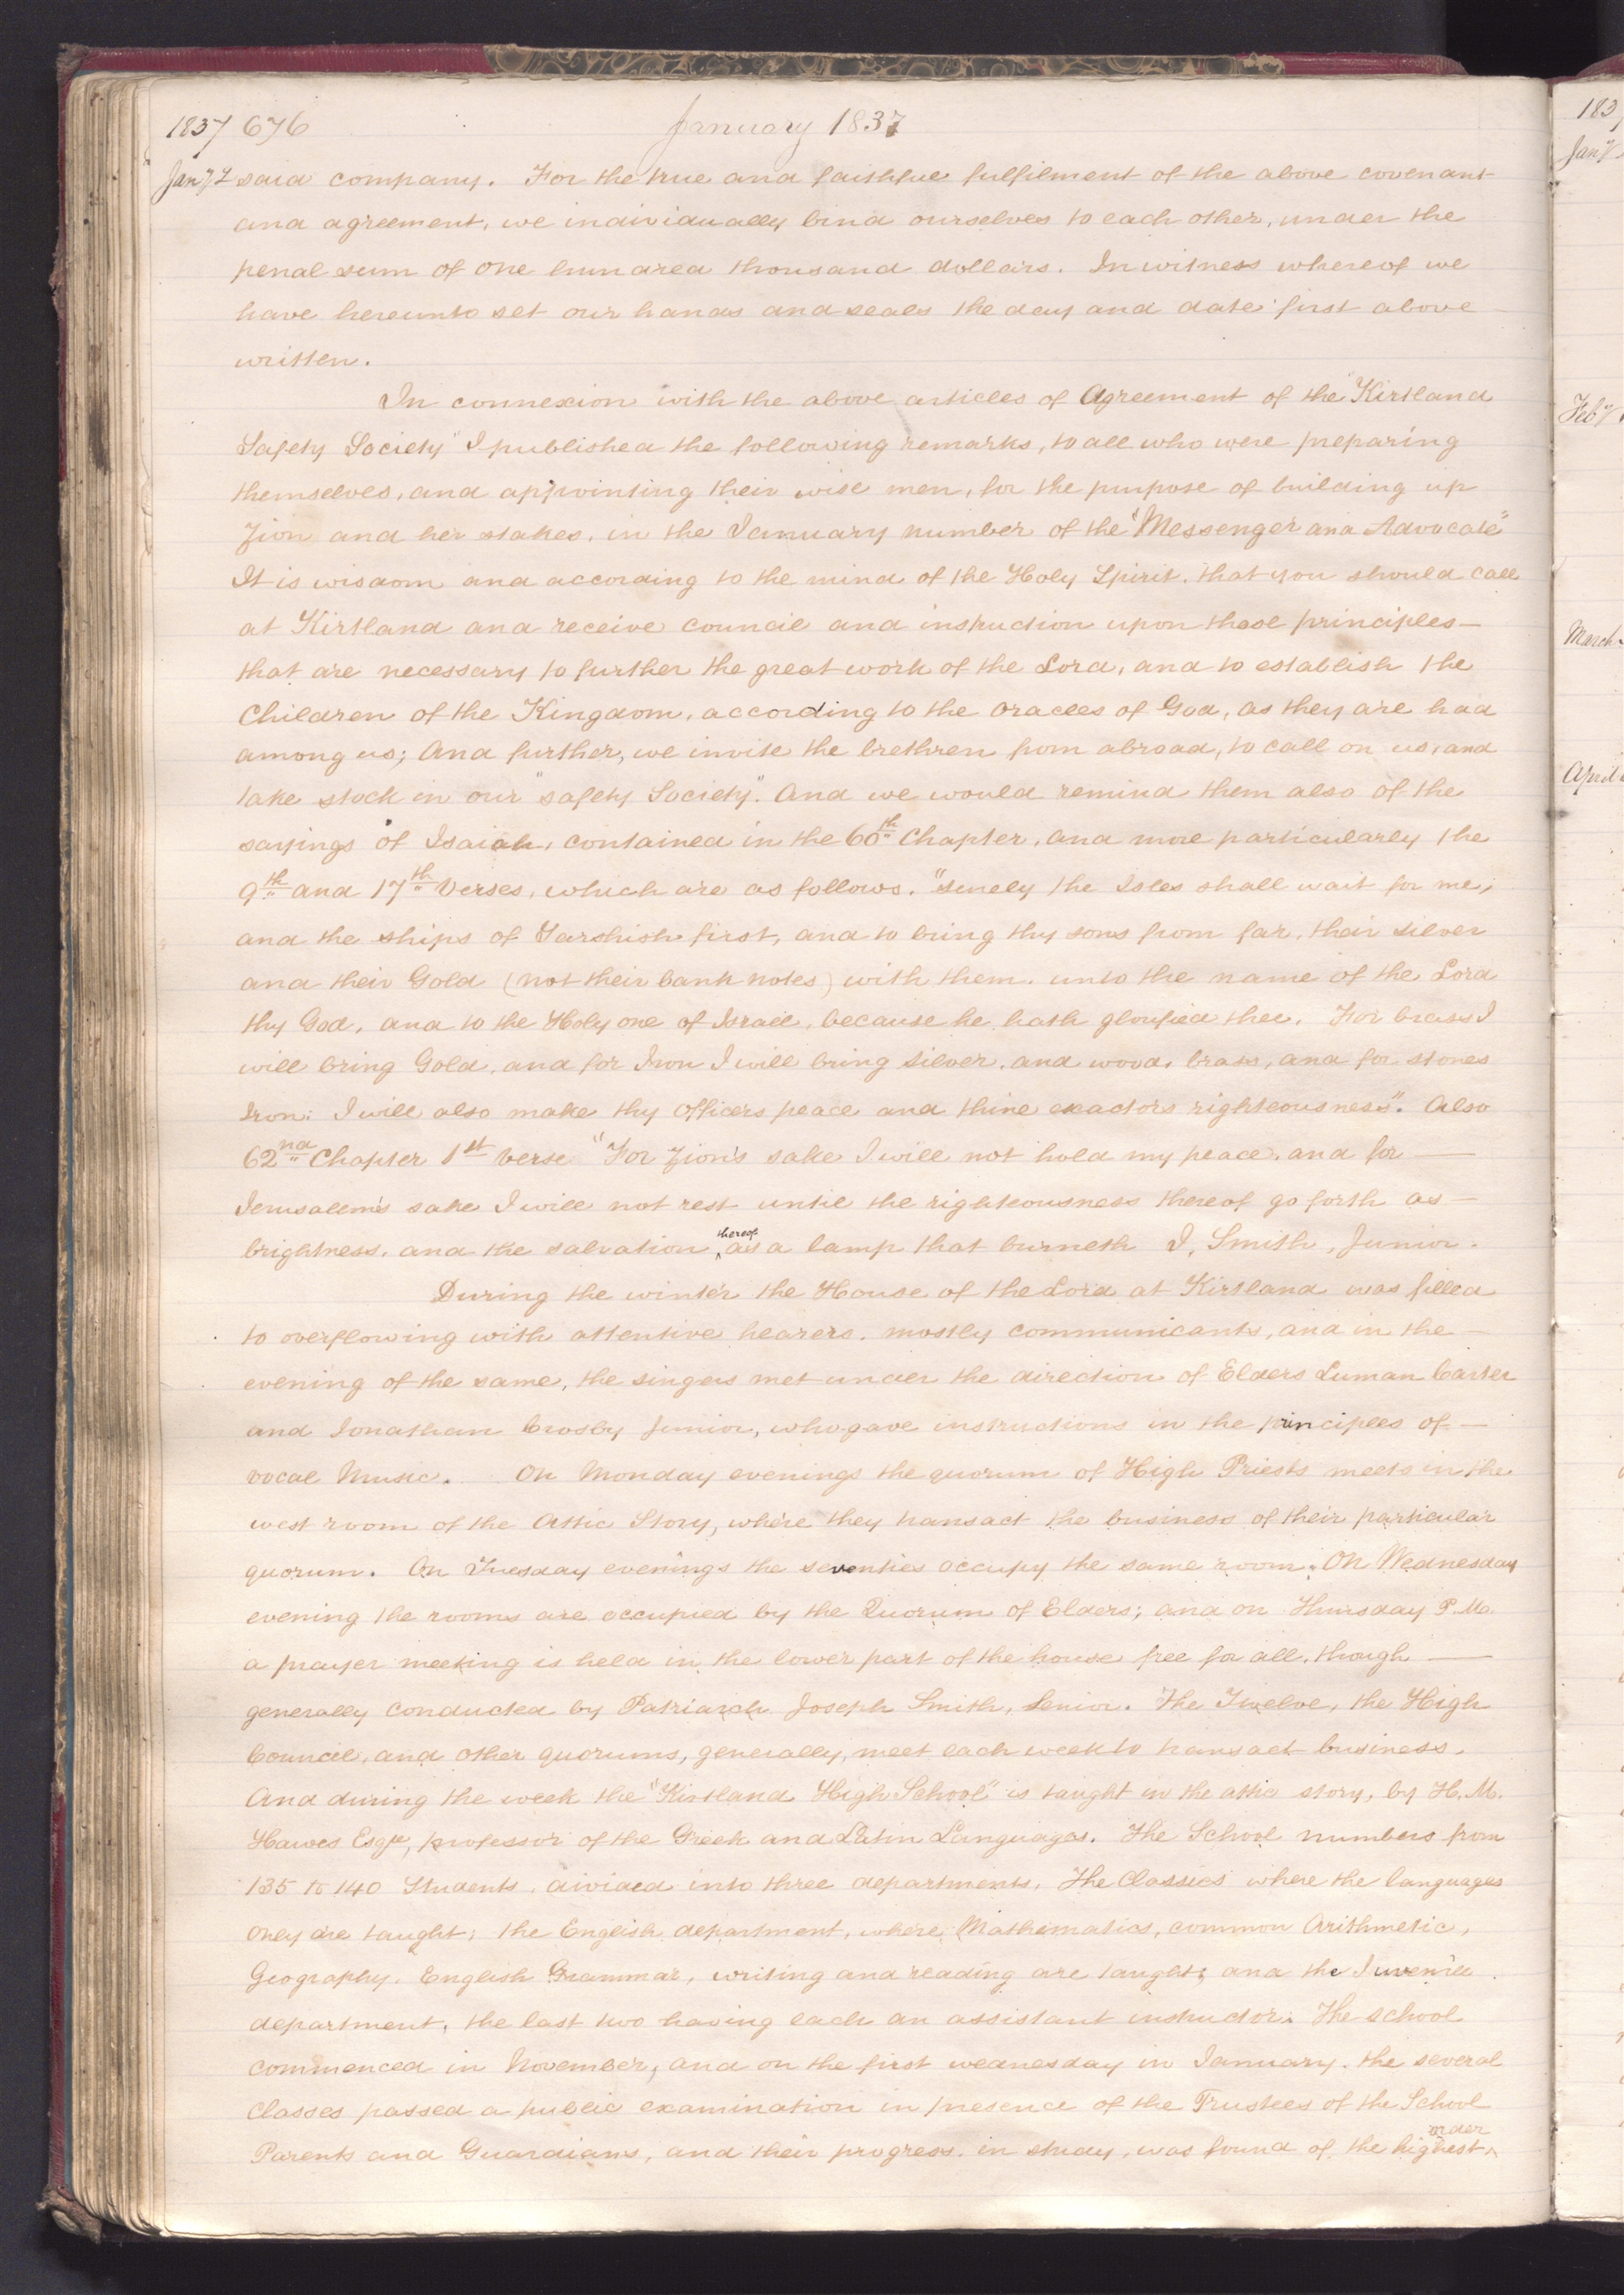 1837 676 January 1837
Jany 2 said company. For the true and faithful fulfilment of the above covenant
and agreement, we individually bind ourselves to each other, under the
penal sum of one hundred thousand dollars. In witness whereof we
have hereunto set our hands and seals the day and date first above
written.
In connexion with the above articles of Agreement of the "Kirtland
Safety Society" I published the following remarks, to all who were preparing
themselves, and appointing their wise men, for the purpose of building up
Zion and her stakes, in the January number of the "Messenger and Advocate"
It is wisdom and according to the mind of the Holy Spirit, that you should call
at Kirtland and receive council and instruction upon those principles—
that are necessary to further the great work of the Lord, and to establish the
Children of the Kingdom, according to the oracles of God, as they are had
among us; And further, we invite the brethren from abroad, to call on us, and
take stock in our "Safety Society". And we would remind them also of the
sayings of Isaiah, contained in the 60th Chapter, and more particularly the
9th and 17th Verses, which are as follows. "Surely the Isles shall wait for me,
and the ships of Tarshish first, and to bring thy sons from far, their silver
and their Gold (not their bank notes) with them, unto the name of the Lord
thy God, and to the Holy one of Israel, because he hath glorified thee. For brass I
will bring Gold, and for Iron I will bring Silver, and wood, brass, and for stones
Iron: I will also make thy officers peace and thine exactors righteousness". Also
62nd Chapter 1st Verse "For Zion's sake I will not hold my peace, and for —
Jerusalem's sake I will not rest until the righteousness thereof go forth as —
brightness, and the salvation thereof as a lamp that burneth J. Smith, Junior.
During the winter the House of the Lord at Kirtland was filled
to overflowing with attentive hearers, mostly communicants, and in the —
evening of the same, the singers met under the direction of Elders Luman Carter
and Jonathan Crosby Junior, who gave instructions in the principles of —
vocal Music. On Monday evenings the quorum of High Priests meets in the
west room of the Attic Story, where they transact the business of their particular
quorum. On Tuesday evenings the seventies occupy the same room. On Wednesday
evening the rooms are occupied by the Quorum of Elders; and on Thursday P.M.
a prayer meeting is held in the lower part of the house free for all, though —
generally conducted by Patriarch Joseph Smith, Senior. The Twelve, the High
Council, and other quorums, generally, meet each week to transact business.
And during the week the "Kirtland High School" is taught in the attic story, by H. M.
Hawes Esqr, professor of the Greek and Latin Languages. The School numbers from
135 to 140 Students, divided into three departments, The Classics where the languages
only are taught; the English department, where Mathematics, common Arithmetic,
Geography, English Grammar, writing and reading are taught; and the Juvenile
department, the last two having each an assistant instructor. The school
commenced in November, and on the first wednesday in January, the several
Classes passed a public examination in presence of the Trustees of the School
Parents and Guardians, and their progress in study, was found of the highest order
183
Jany
Feby
March
April